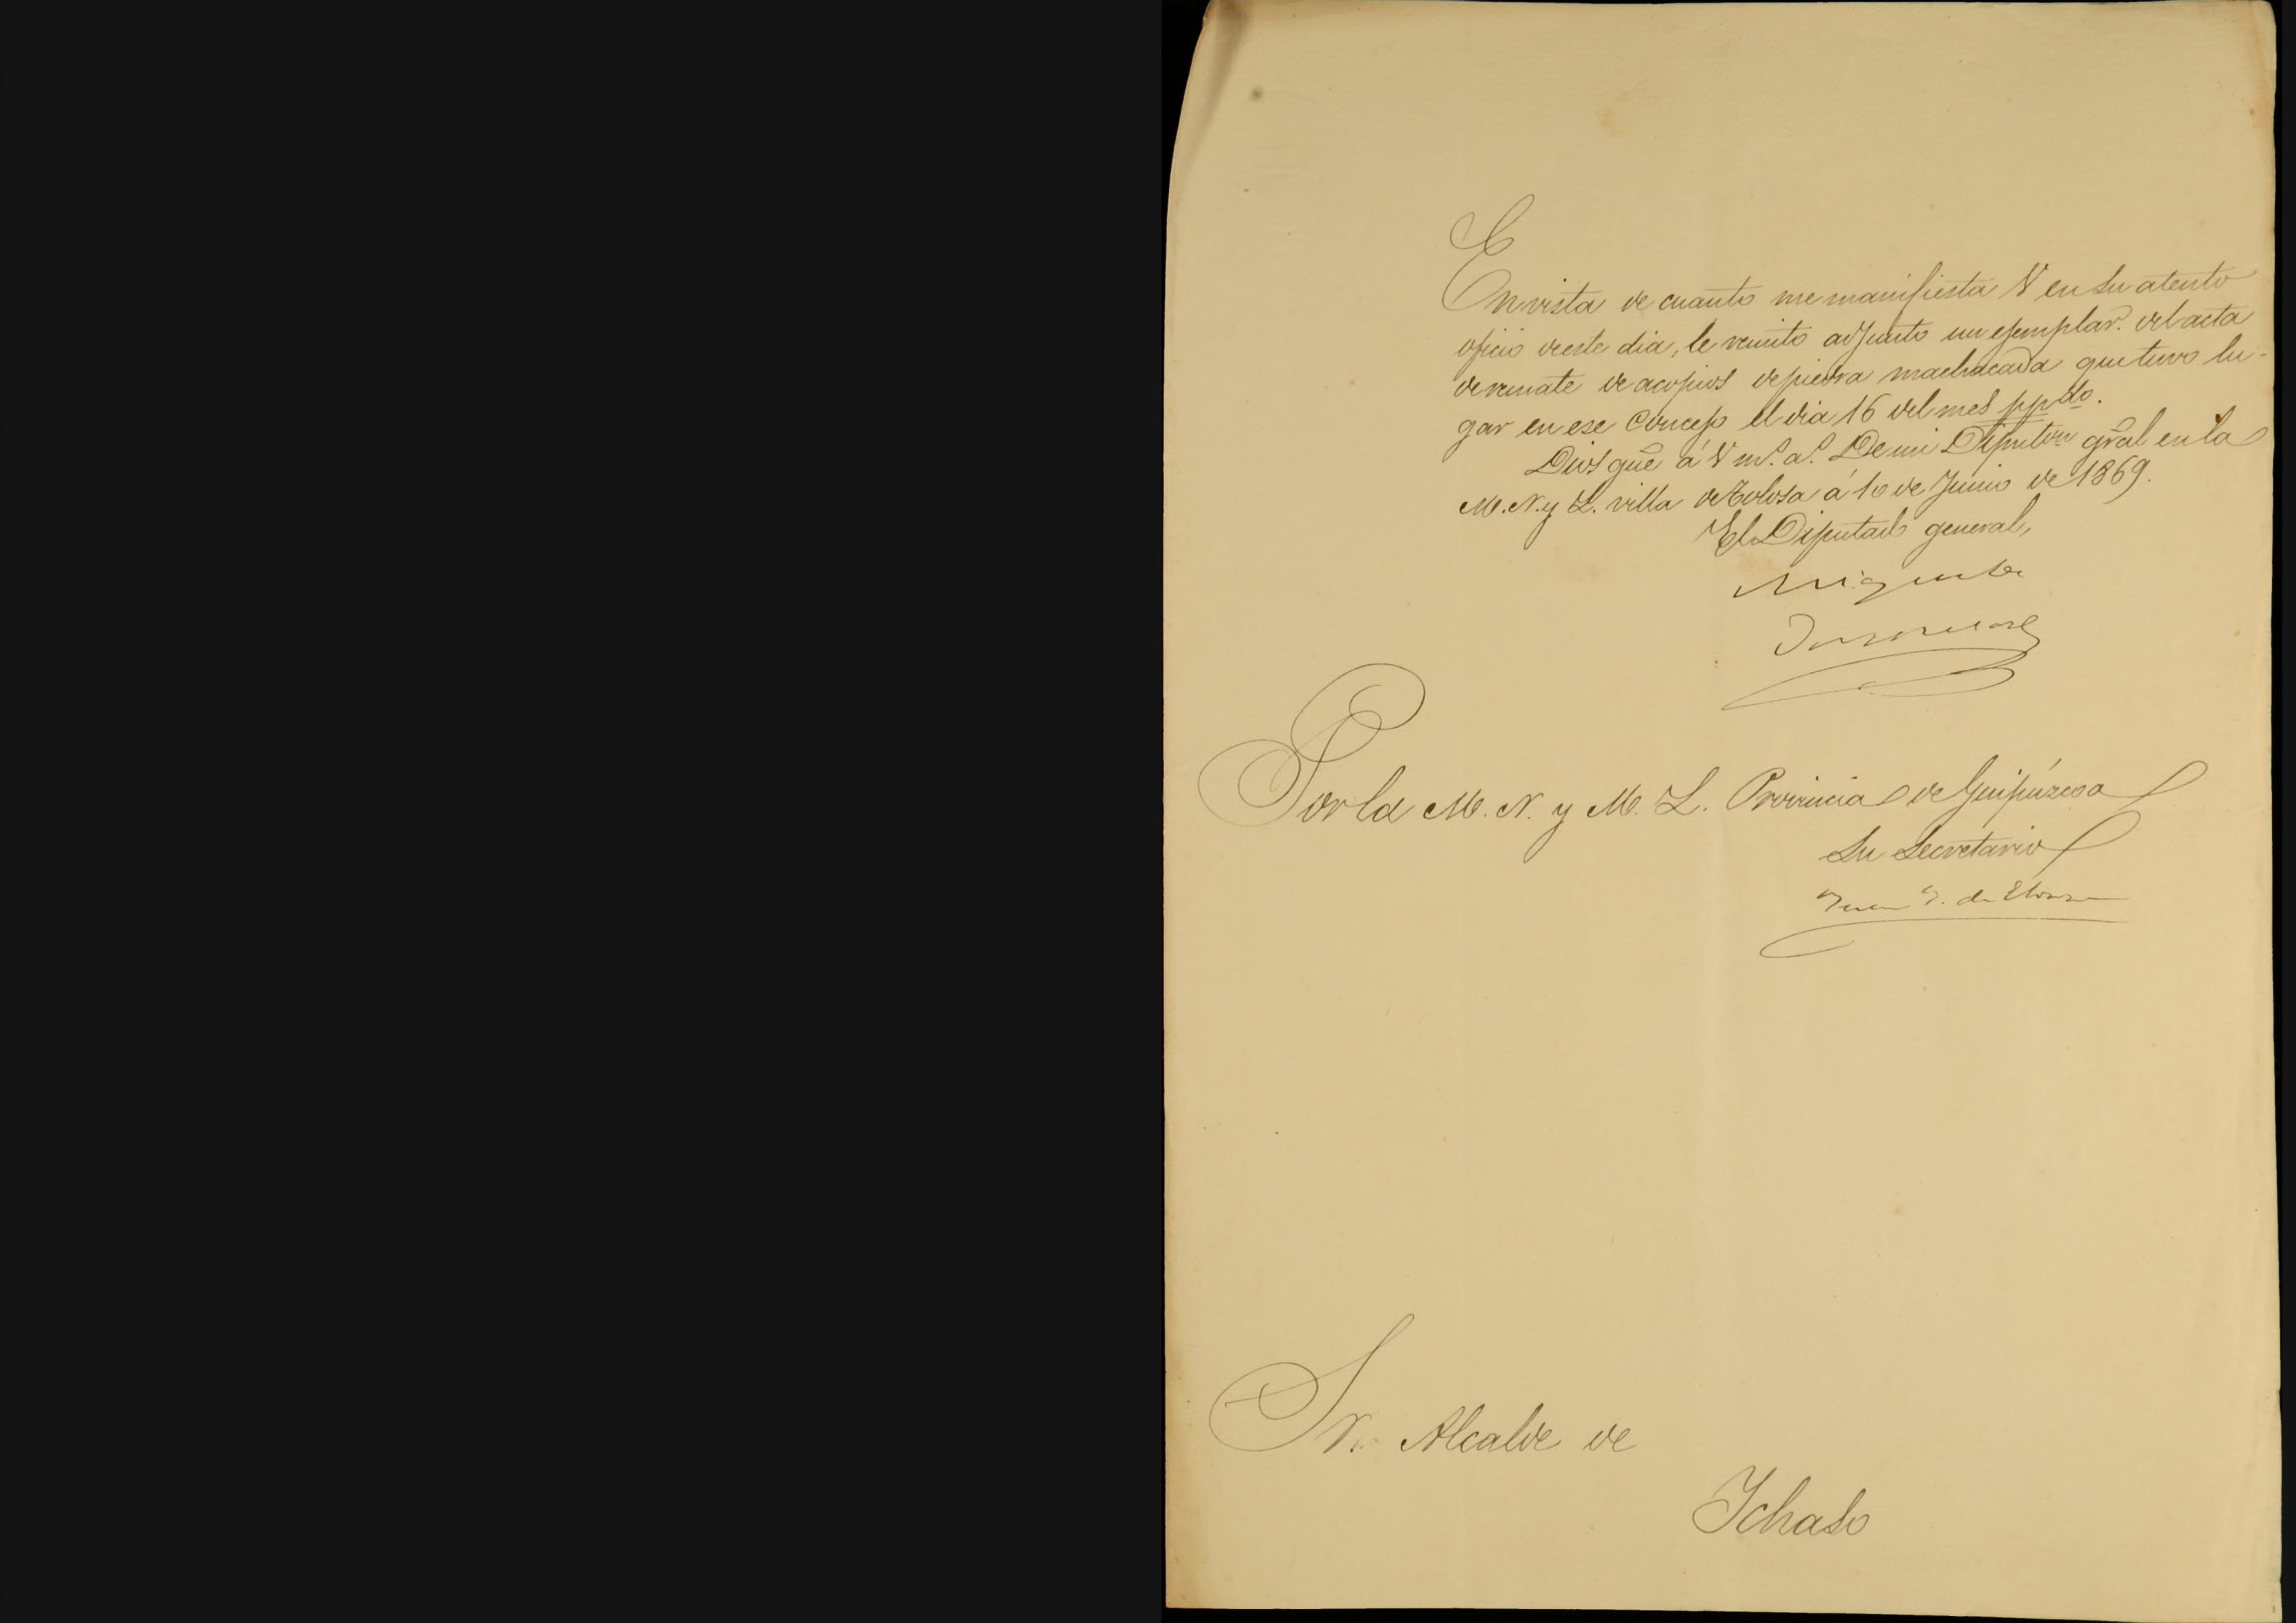 En vista de cuanto me manifiesta V en su atento
oficio de este dia, le remito adjunto un ejemplar. del acta
de remate de acopios de piedra machacada que tuvo lu-
gar en ese Concejo el dia 16 del mes ppdo.
Dios gũe á V ms. as. De mi Diputon gral en la
M. N. y L. villa de Tolosa á 10 de Junio de 1869.
El Diputado general,
Por la M. N. y M. L. Provincia de Guipúzcoa
Su Secretario
Juan J. de
Sr. Alcalde de
Ichaso